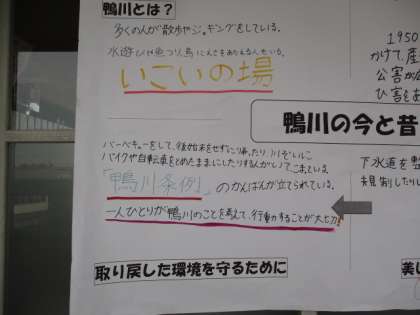 鴨川とは?
多くの人が散歩やジョギングをしている。
水遊びや魚つり、鳥にえさをあたえる人もいる。
いこいの場
1950
かけて、産
公害が
ひ害をお
鴨川の今と昔
バーベキューをして、後始末をせずに帰ったり、川ぞいに
バイクや自転車をとめたままにしたりする人がいてこまっている。
「鴨川条例」のかんばんが立てられている。
一人ひとりが鴨川のことを考えて、行動することが大切!
下水道を整
規制したり
取り戻した環境を守るために
美し